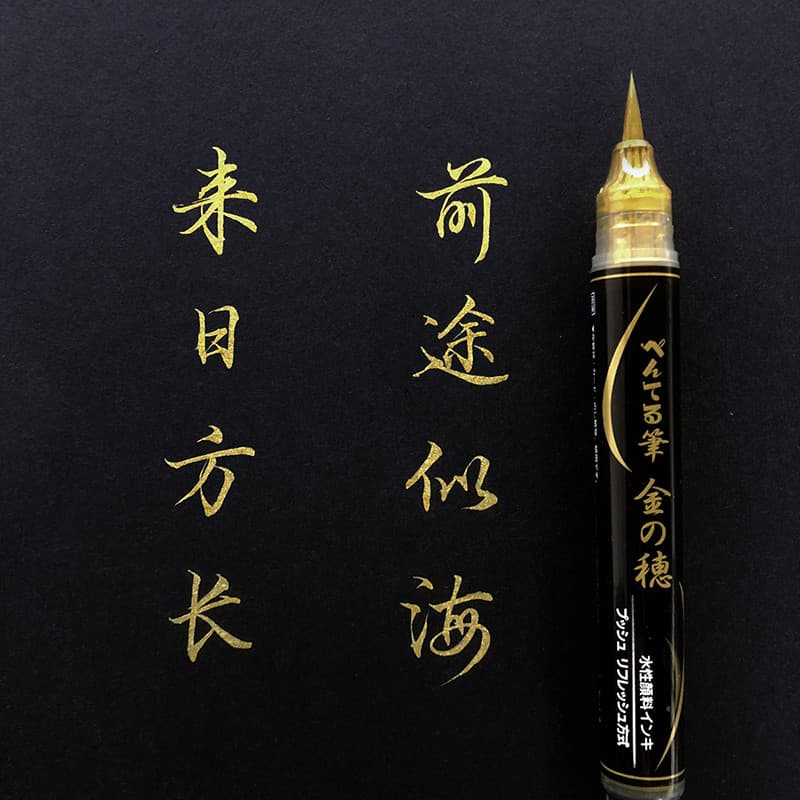 前途似海
来日方长
ぺんてる筆 金の穂
水性顔料インキ
プッシュ リフレッシュ方式